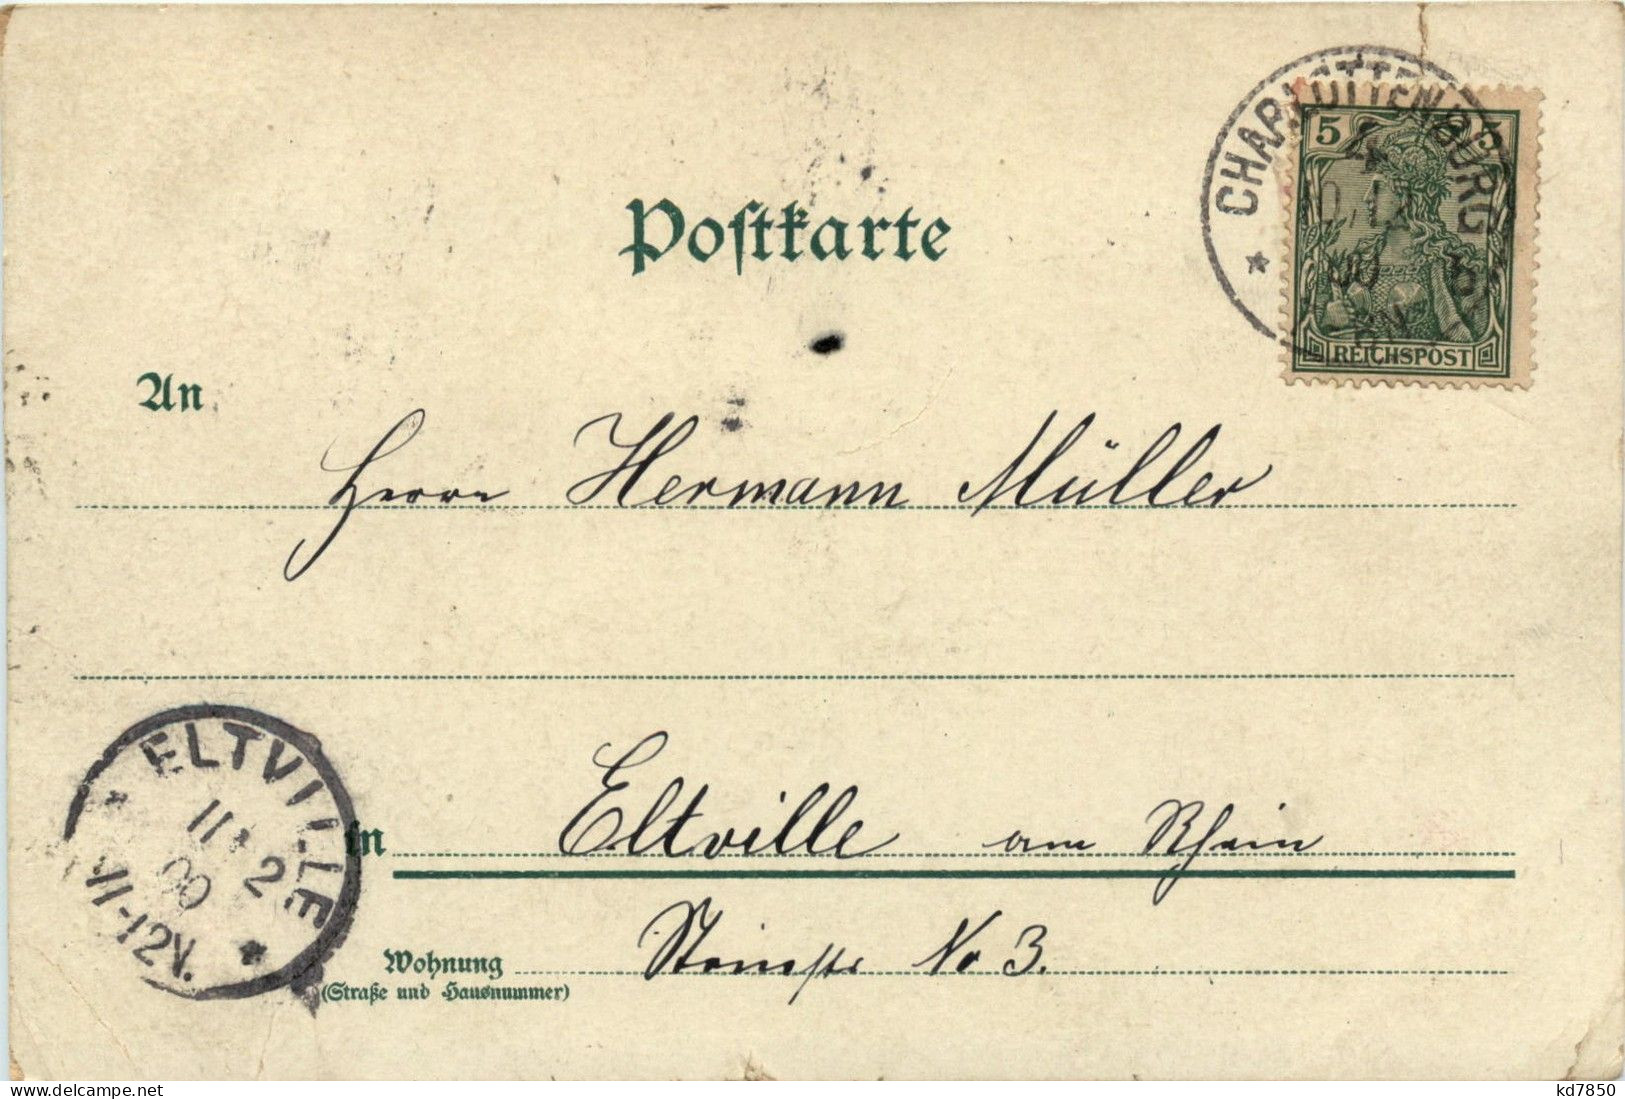 Postkarte
CHARLOTTENBURG
4
00
5 5
REICHSPOST
An
Herrn Hermann Müller
ELTVILLE
11 2
00
11-12V.
in Eltville am Rhein
Wohnung
(Straße und Hausnummer)
No 3.
www.delcampe.net
kd7850